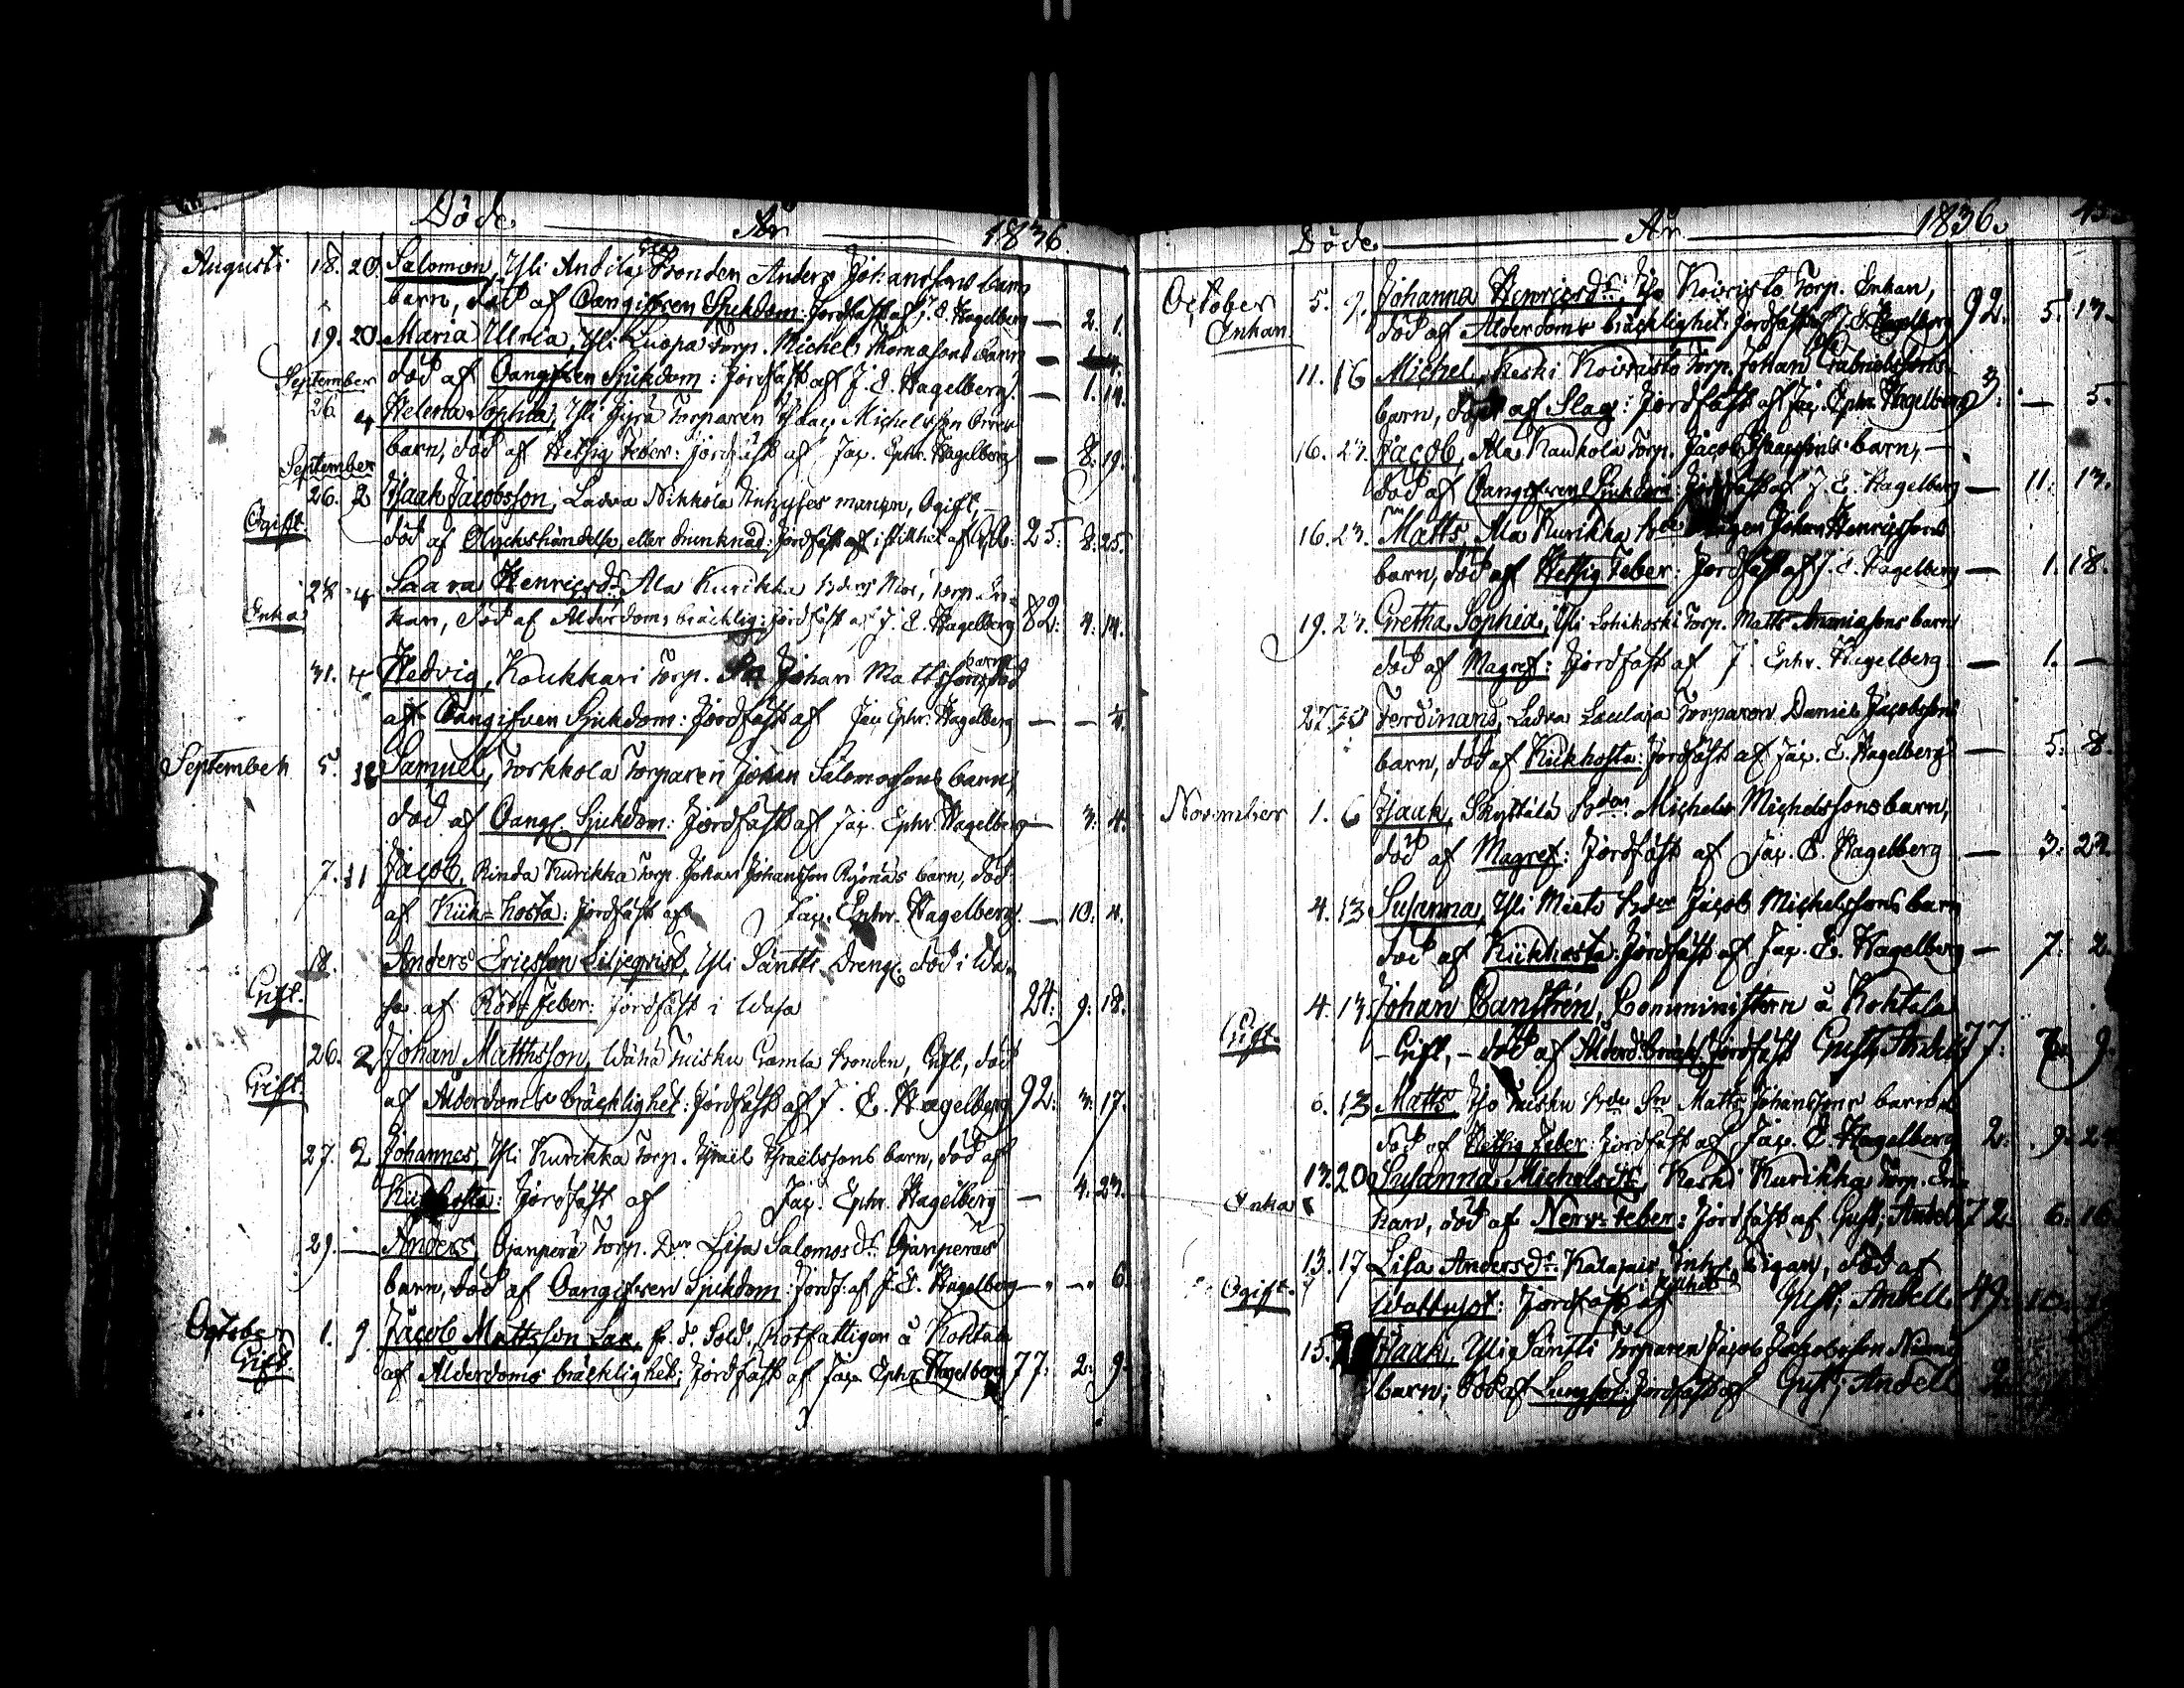 Döde År 1836.
Augusti 18. 20. Salomon, Yli Andila Bonden Anders Johanssons barn
barn, död af Oangifven Sjukdom: Jordfäst af J. E. Hagelberg — 2. 1.
19. 20. Maria Ulrica, Yli Luopa Torp. Michel Thomasons barn —
September död af Oangifven Sjukdom: Jordfäst af J. E. Hagelberg. — 1. 14.
26. 4 Helena Sophia, Yli Jyrä Torparen Isaac Michelsson
barn, död af Hetsig Feber: Jordfäst af Jac. Ephr. Hagelberg — 8. 19.
September
26. 2 Isaak Jacobsson, Ladva Nikkola Inhyses mannen, Ogift, —
Ogift. död af Olyckshändelse, eller drunknad: Jordfäst i stillhet af 25. 8. 25.
28 4 Saara Henricsdr. Ala Kurikka Mor, Torp. En-
Enka kan, död af Alderdoms bräcklig: Jordfäst af J. E. Hagelberg 82. 4. 14.
31. 4 Hedvig, Koukkari Torp. Johan Mattssons barn död
af Oangifven Sjukdom: Jordfäst af Jac. Ephr. Hagelberg — —
September 5. 11 Samuel, Torkkola Torparen Johan Salomonsons barn,
död af Oangf. Sjukdom: Jordfäst af Jac. Ephr. Hagelberg — 3. 4.
7. 11 Jacob, Rinda Kurikka Torp. Johan Johansson barn, död
af Kik-hosta: Jordfäst af Jac. Ephr. Hagelberg. — 10. 4.
18. Anders Ericsson Liljeqvist, Yli Säntti Dreng. död i Wa-
Gift. sa af Röd-Feber: Jordfäst i Wasa 24. 9. 18.
26. 2 Johan Mattsson, Wähä Mieku Gamla Bonden, Gift, död
Gift. af Alderdoms bräcklighet: Jordfäst af J. E. Hagelberg 92. 3. 17.
27. 2 Johannes, Yli Kurikka Torp. Israel Israelssons barn, död af
Kikhosta: Jordfäst af Jac. Ephr. Hagelberg — 4. 23.
29. — Anders, Ojanperä Torp. Dr. Lisa Salomosdr. Ojanperäs
barn, död af Oangifven Sjukdom: Jordf. af J. E. Hagelberg — — 6.
October 1. 9 Jacob Mattsson Lax, f. d. Sold. Rotfattigen å Kohtala
Gift. af Alderdoms bräcklighet: Jordfäst af Jac. Ephr. Hagelberg 77. 2. 9.
Döde År 1836.
October 5. 9. Johanna Henricsdr. Iso Koivisto Torp. Enkan,
Enkan död af Alderdoms bräcklighet: Jordfäst af J. E. Hagelberg 92. 5. 13.
11. 16 Michel, Keski Koivisto Torp. Johan Gabrielssons
barn, död af Slag: Jordfäst af Jac. Ephr. Hagelberg 3. — 5.
16. 23. Jacob, Ala Kauhola Torp. Jacob Isaacssons barn, —
död af Oangifven Sjukdom: Jordfäst af J. E. Hagelberg — 11. 13.
16. 23. Matts, Ala Kurikka Johan Henricssons
barn, död af Hetsig Feber: Jordfäst af J. E. Hagelberg — 1. 18.
19. 23. Gretha Sophia, Yli Lohikoski Torp. Matts Ananiasons barn
död af Magref: Jordfäst af J. Ephr. Hagelberg — 1. —
27. 30 Ferdinand, Ladva Laulaja Torparen Daniel Jacobssons
barn, död af Kikhosta: Jordfäst af Jac. E. Hagelberg — 5. 8.
November 1. 6 Isaak, Skyttälä Bdon. Michels Michelssons barn,
död af Magref: Jordfäst af Jac. E. Hagelberg — 3. 23.
4. 13 Susanna, Yli Mieto Bden Jacob Michelssons barn
död af Kikhosta: Jordfäst af Jac. E. Hagelberg — 7. 2.
4. 13. Johan Canstrén, Comministern å Kohtala
Gift. — Gift, — död af Alderd. bräckl. Jordfäst Gust. Andell 77. 7. 9.
6. 13 Matts Iso Mieku Bden Sn Matts Johanssons barn
död af Hetsig Feber: Jordfäst af Jac. E. Hagelberg 2. 9.
13. 20 Susanna Michelsdtr. Keski Kurikka Torp. En-
Enka kan, död af Nerv-feber: Jordfäst af Gust. Andell 72. 6. 16.
13. 17 Lisa Andersdr. Inhys. Pigan, död af
Ogift. Wattusot: Jordfäst i stillhet af Gust. Andell 49. 10.
15. 20 Isaak, Yli Säntti Torparen Jacob Jakobsson
barn; död af Lungsot: Jordfäst af Gust. Andell 2.